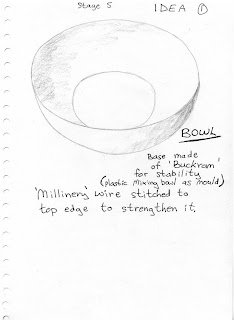 Stage 5 IDEA ①
BOWL
Base made
of 'Buckram'
for stability
(plastic mixing bowl as mould)
'Millinery' wire stitched to
top edge to strengthen it.